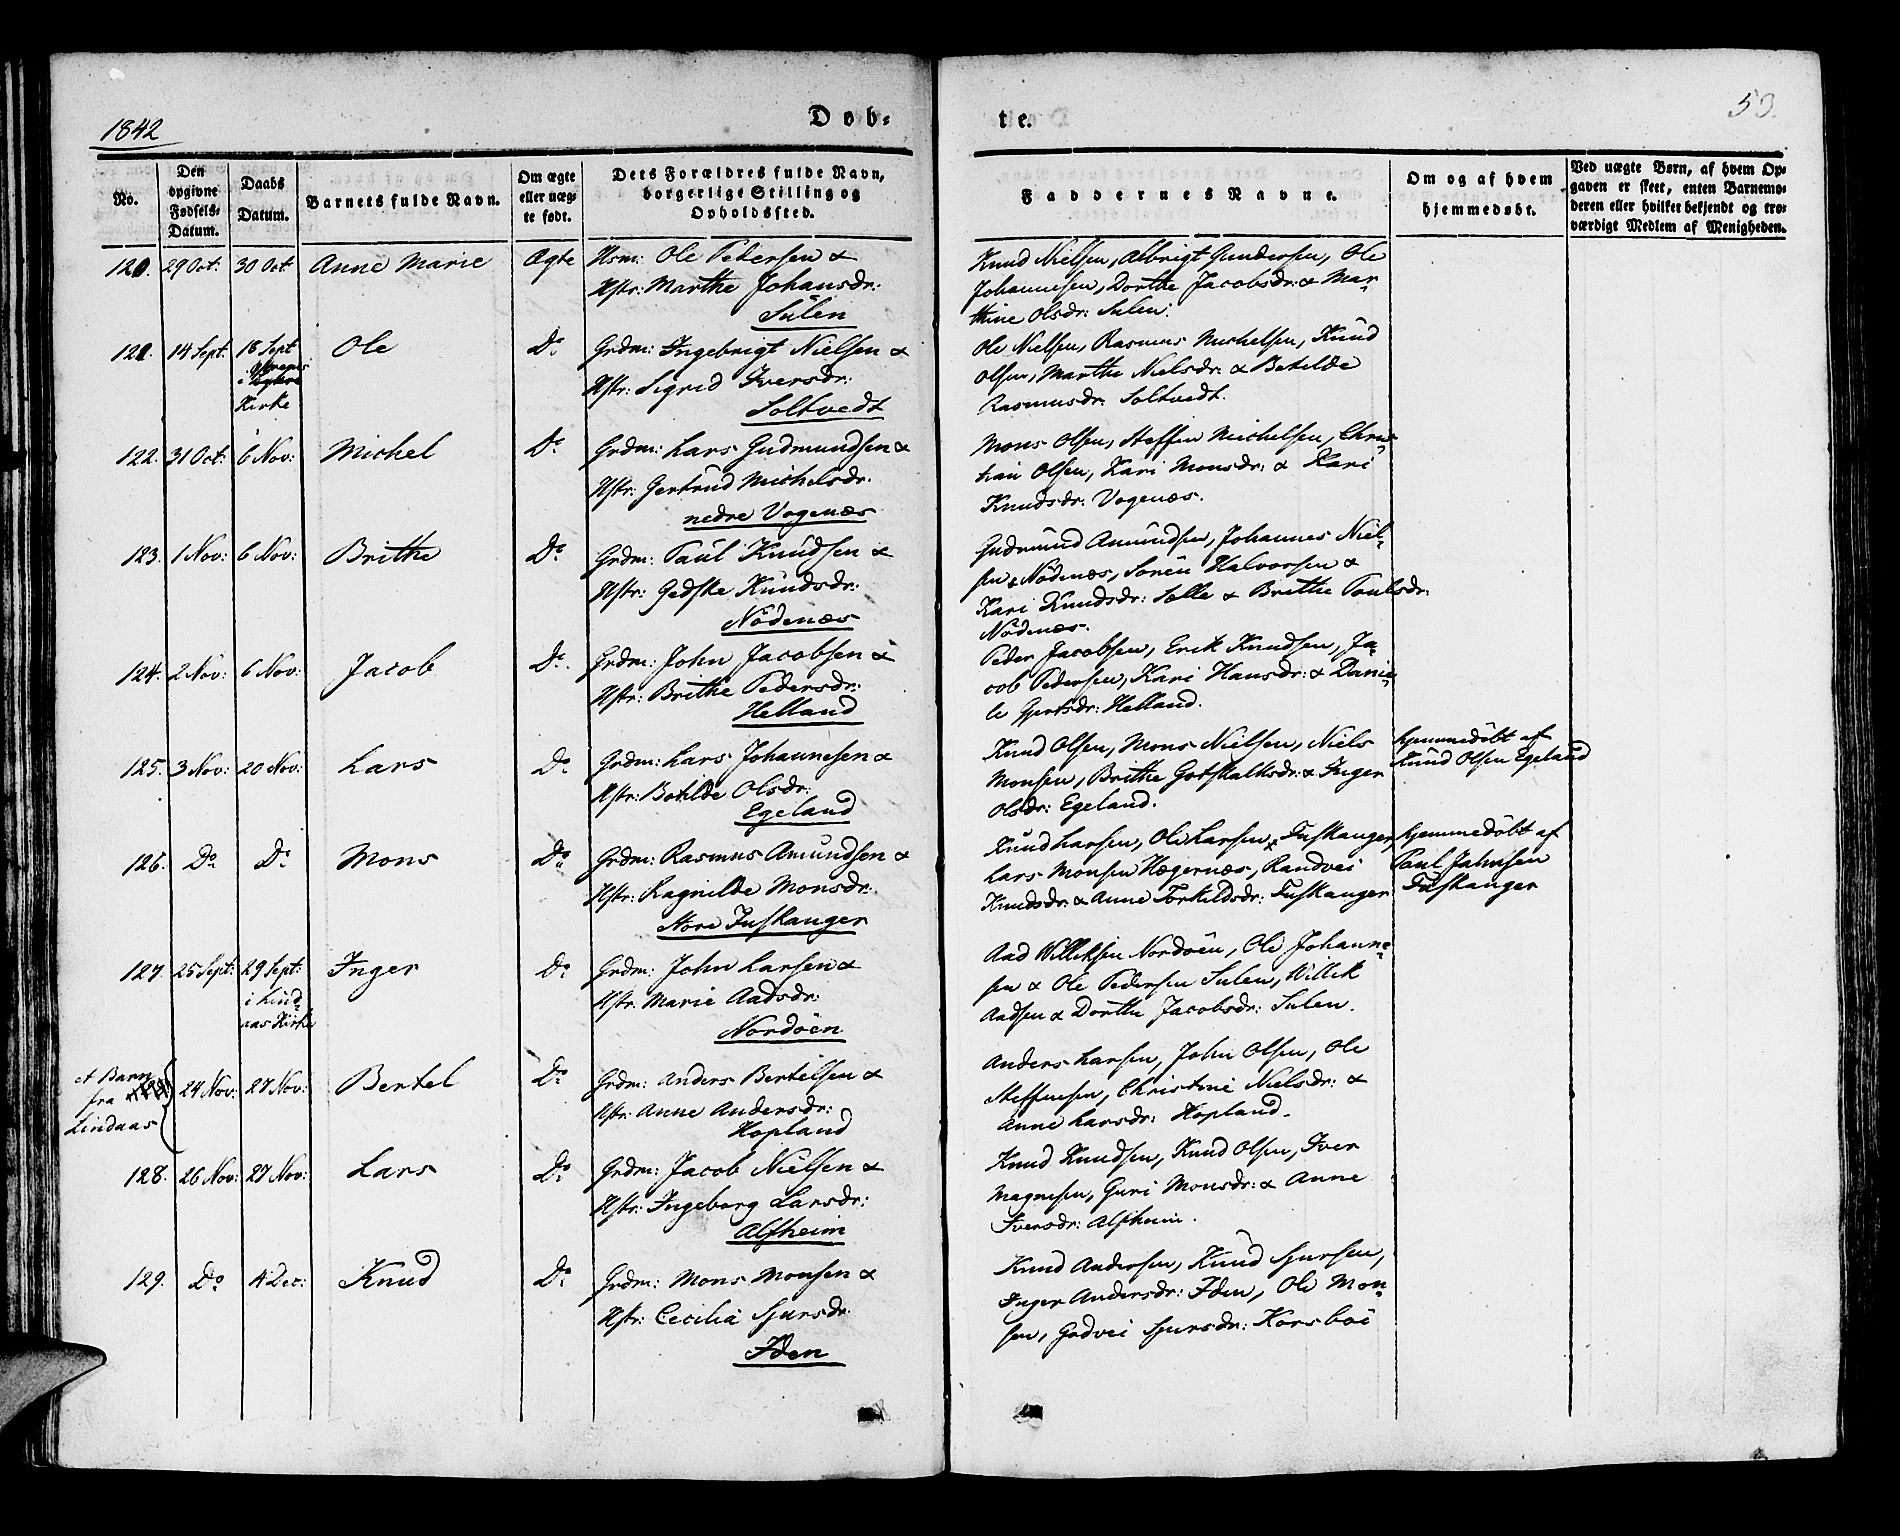 1842
Døb-
te.
53.
No.
Den opgivne Fødsels-Datum.
Daabs Datum.
Barnets fulde Navn.
Om ægte eller uægte født.
Dets Forældres fulde Navn, borgerlige Stilling og Opholdssted.
Faddernes Navne.
Om og af hvem hjemmedøbt.
Ved uægte Børn, af hvem Opgaven er skeet, enten Barnemoderen eller hvilket bekjendt og troværdigt Medlem af Menigheden.
120. 29 Oct: 30 Oct Anne Marie Ægte Hsm: Ole Pedersen &
Hstr: Marthe Johansdr:
Sulen
Knud Nielsen, Albrigt Gundersen, Ole
Johannesen, Dorthe Jacobsdr: & Mar-
thine Olsdr: Sulen.
121. 14 Sept: 18 Sept Ole Do Grdm: Ingebrigt Nielsen &
Kirke
Hstr: Sigrid Iversdr:
Soltvedt
Ole Nielsen, Rasmus Michelsen, Knud
Olsen, Marthe Nielsdr: & Botilde
Rasmusdr: Soltvedt.
122. 31 Oct: 6 Nov: Michel Do Grdm: Lars Gudmundsen &
Hstr: Gertrud Michelsdr.
nedre Vogenæs
Mons Olsen, Steffen Michelsen, Chris-
tian Olsen, Kari Monsdr: & Kari
Knudsdr: Vogenæs.
123. 1 Nov: 6 Nov: Brithe Do Grdm: Paul Knudsen &
Hstr: Gedske Knudsdr:
Nödenæs
Gudmund Amundsen, Johannes Niel-
sen Nödenæs, Sören Halvorsen &
Kari Knudsdr: Solle & Brithe Paulsdr:
Nödenæs.
124. 2 Nov: 6 Nov: Jacob Do Grdm: John Jacobsen &
Hstr: Brithe Pedersdr:
Helland
Peder Jacobsen, Erik Knudsen, Ja-
cob Pedersen, Kari Hansdr: & Danie-
le Gjertsdr: Helland.
125. 3 Nov: 20 Nov: Lars Do Grdm: Lars Johannesen &
Hstr: Botilde Olsdr:
Egeland
Knud Olsen, Mons Nielsen, Niels
Monsen, Brithe Gotskalksdr: & Inger
Olsdr: Egeland.
hjemmedöbt af
Knud Olsen Egeland
126. Do Do Mons Do Grdm: Rasmus Amundsen &
Hstr: Ragnilde Monsdr:
Store Fuskanger
Knud Larsen, Ole Larsen, Fuskanger,
Lars Monsen Hægernæs, Randvei
Knudsdr: & Anne Torkildsdr: Fuskanger
hjemmedöbt af
Paul Jahnsen
Fuskanger
127. 25 Sept: 29 Sept: Inger Do Grdm: John Larsen &
i Lind-
aas Kirke
Hstr: Marie Aadsdr:
Nordöen
Aad Williksen Nordöen, Ole Johanne-
sen & Ole Pedersen Sulen, Willik
Aadsen & Dorthe Jacobsdr: Sulen.
et Barn
fra
Lindaas
24 Nov: 27 Nov: Bertel Do Grdm: Anders Bertelsen &
Hstr: Anne Andersdr:
Hopland
Anders Larsen, John Olsen, Ole
Steffensen, Christine Nielsdr: &
Anne Larsdr: Hopland.
128. 26 Nov: 27 Nov: Lars Do Grdm: Jacob Nielsen &
Hstr: Ingeborg Larsdr:
Alfheim
Knud Knudsen, Knud Olsen, Iver
Magnesen, Guri Monsdr: & Anne
Iversdr: Alfheim.
129. Do 4 Dec: Knud Do Grdm: Mons Monsen &
Hstr: Cecilia Sjursdr:
Iden
Knud Andersen, Knud Sjursen,
Inger Andersdr: Iden, Ole Mon-
sen, Gudvei Sjursdr: Korsböe